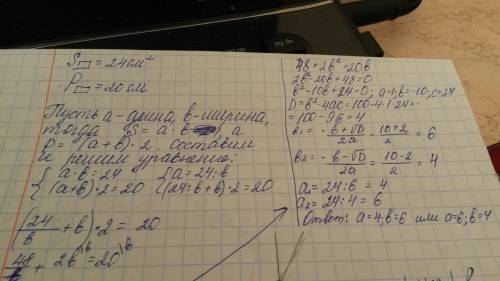 S▭ = 24 см²
P▭ = 20 см
Пусть a - длина, b - ширина,
тогда S = a · b, а
P = (a + b) · 2. составим
и решим уравнение:
{ a · b = 24 { a = 24 : b
{ (a + b) · 2 = 20 { (24 : b + b) · 2 = 20
(24/b + b) · 2 = 20
48/b + 2b \b = 20 \b
48 + 2b² = 20b
2b² - 20b + 48 = 0
b² - 10b + 24 = 0; a = 1; b = -10; c = 24
D = b² - 4ac = 100 - 4 · 1 · 24 =
= 100 - 96 = 4
b₁ = (-b + √D)/2a = (10 + 2)/2 = 6
b₂ = (-b - √D)/2a = (10 - 2)/2 = 4
a₁ = 24 : 6 = 4
a₂ = 24 : 4 = 6
Ответ: a = 4; b = 6 или a = 6; b = 4